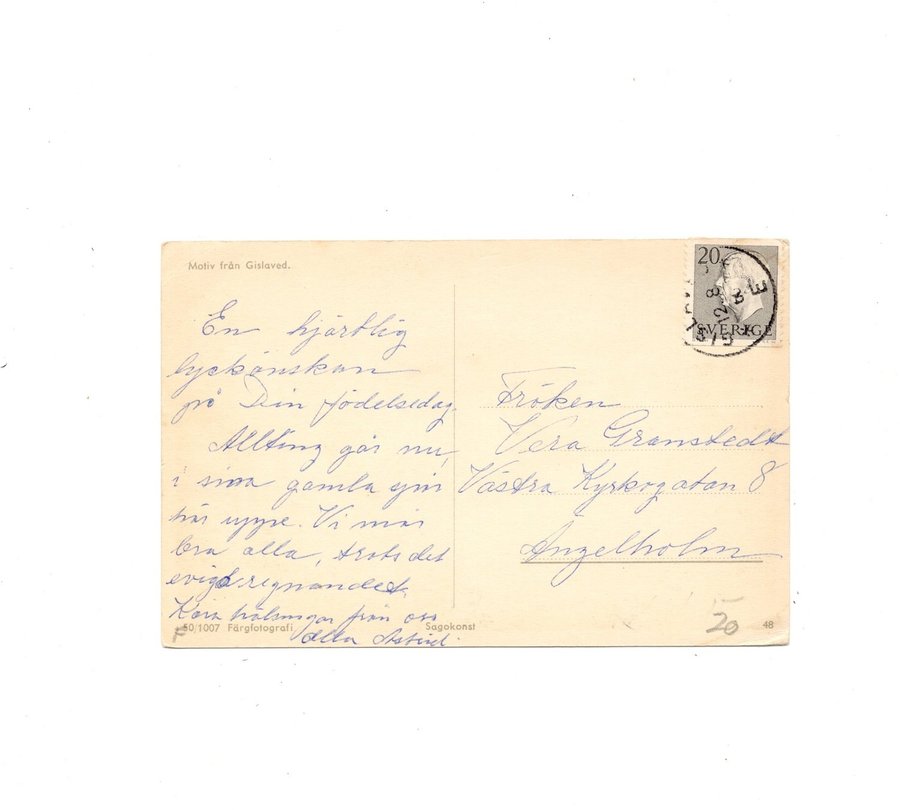 Motiv från Gislaved.
En hjärtlig
lyckönskan
på Din födelsedag.
Allting går nu
i sina gamla spår
här uppe. Vi mår
bra alla, trots det
eviga regnandet.
Kära hälsningar från oss
alla Astrid.
50/1007 Färgfotografi
Sagokonst
20
SVERIGE
Fröken
Vera Granstedt
Västra Kyrkogatan 8
Ängelholm
20
48